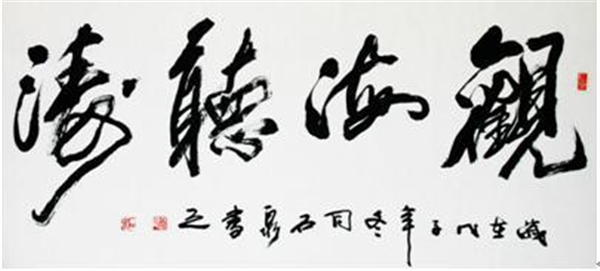 觀海聽濤
歲在戊子年冬石泉書之